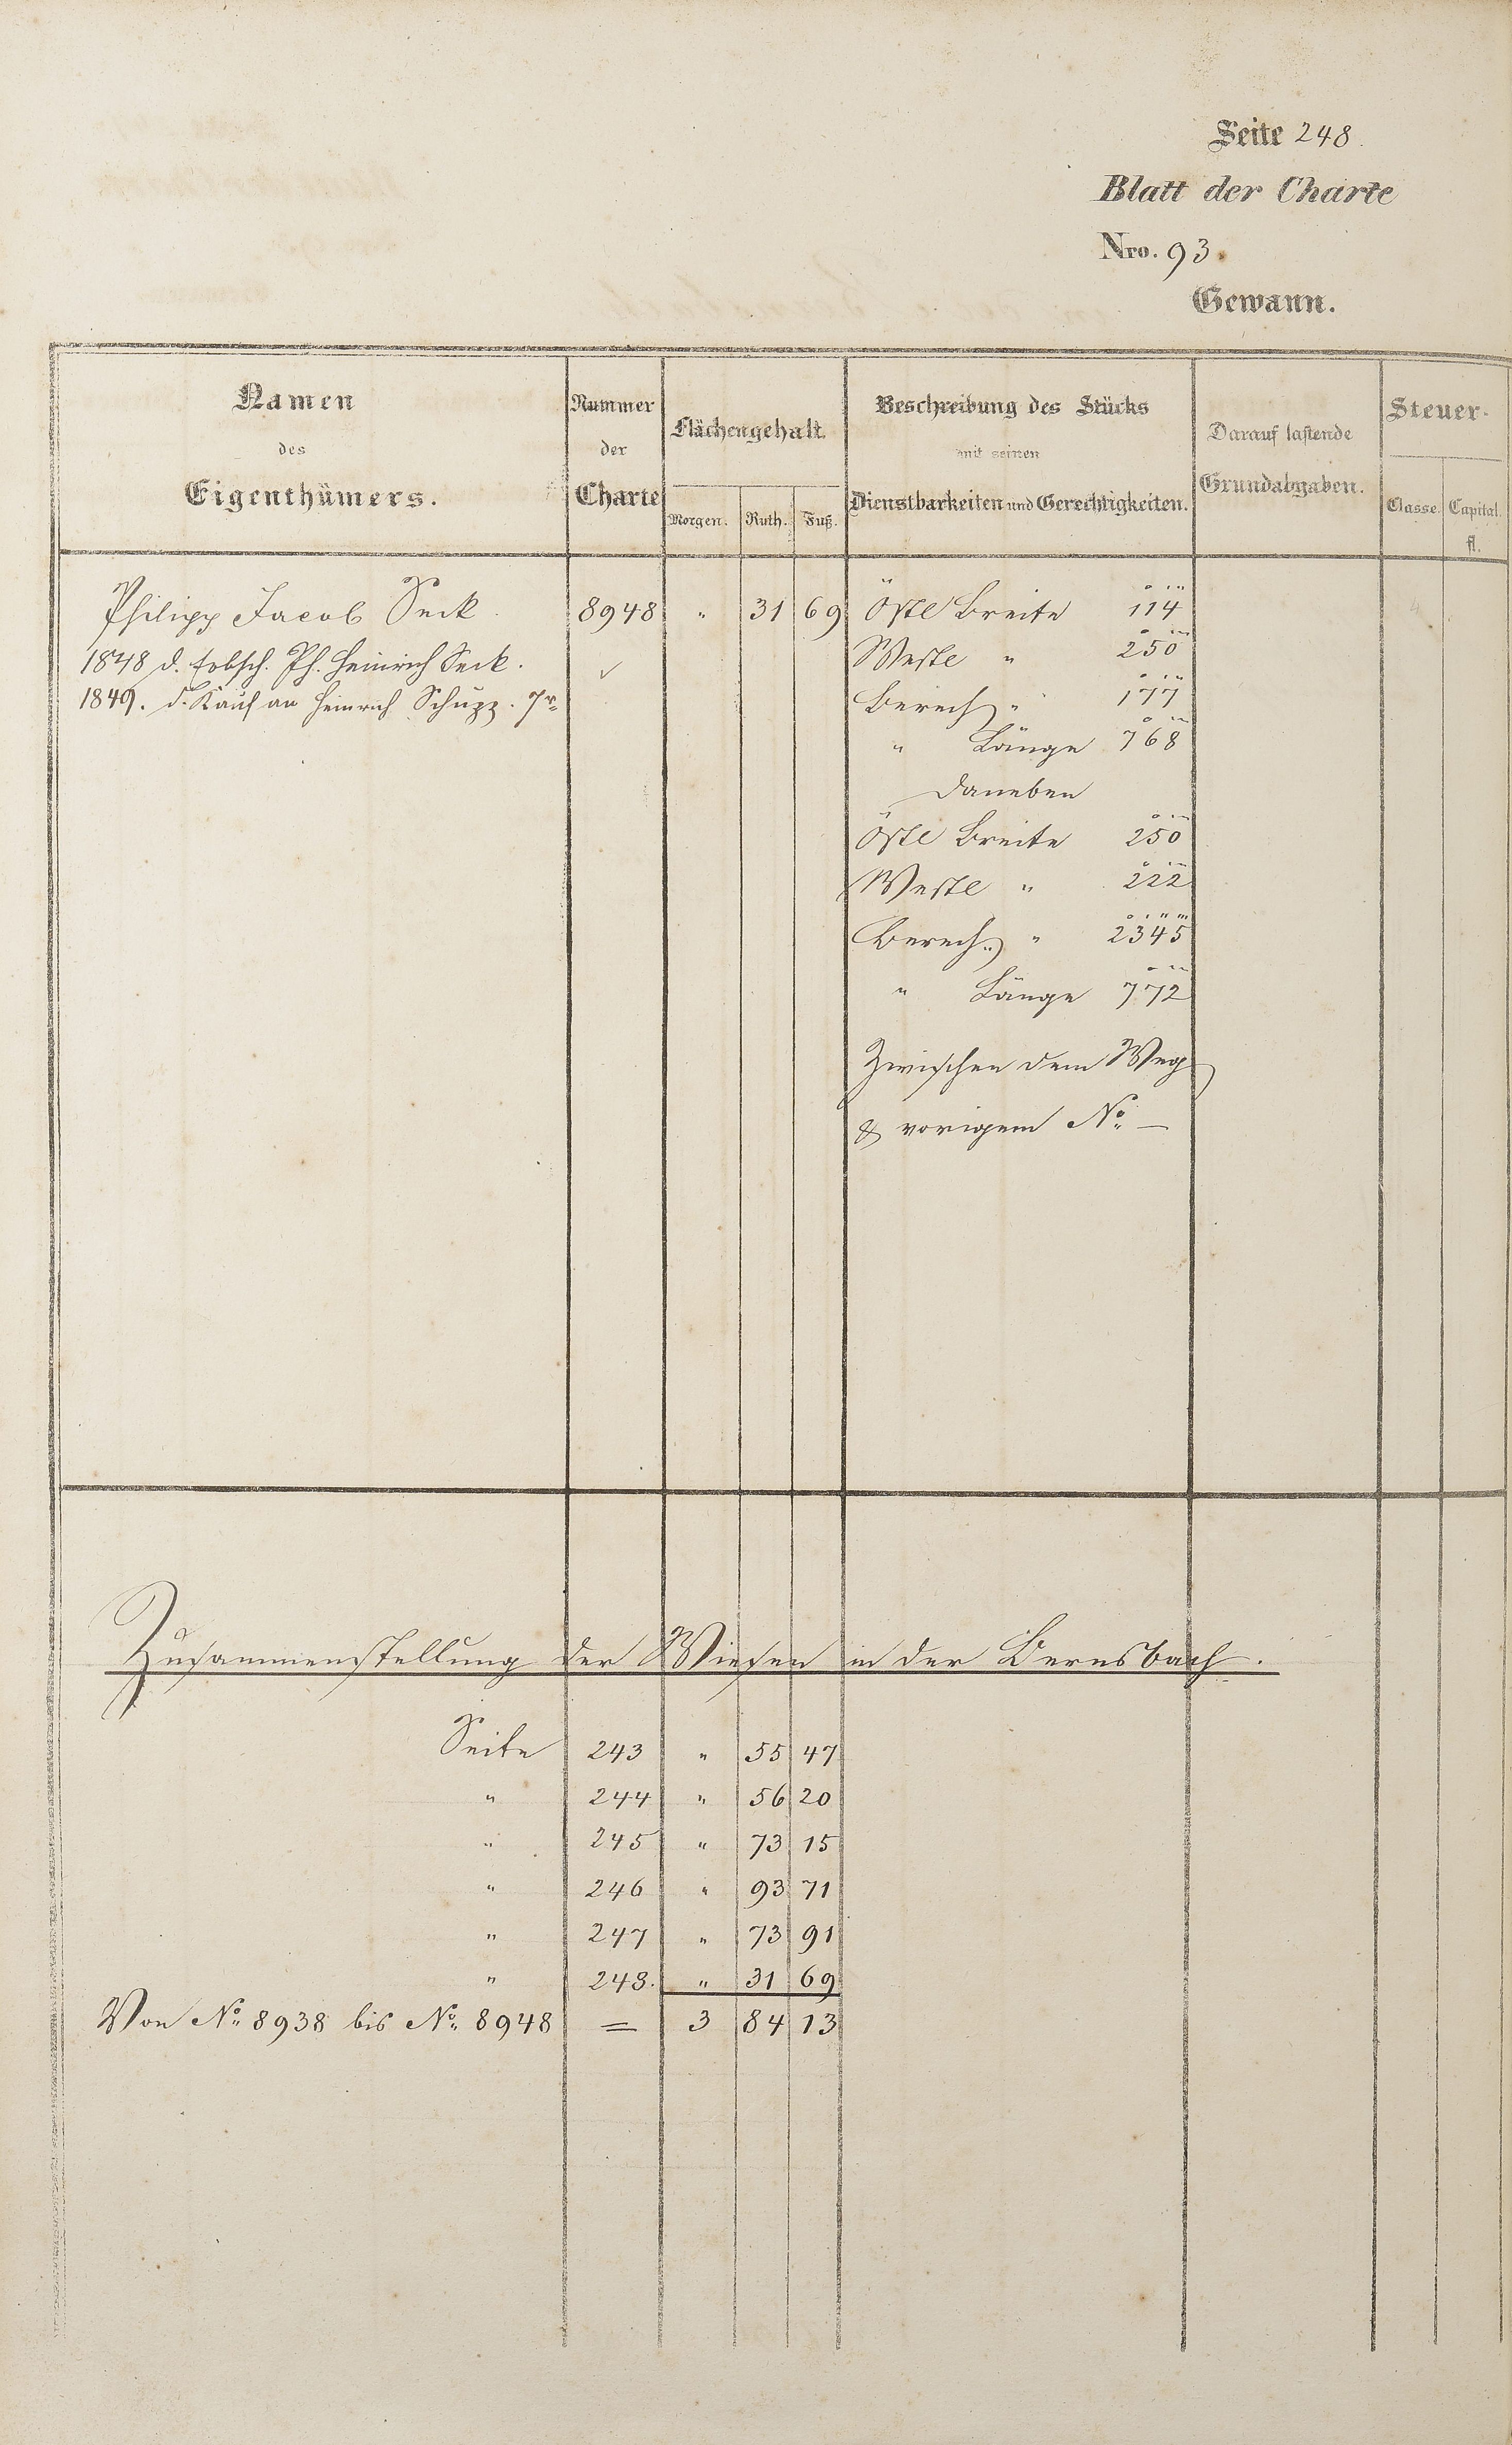 Seite 248.
Blatt der Charte
Nro. 93.
Gewann.
Namen des Eigenthümers.
Nummer der Charte
Flächengehalt.
Morgen. Ruth. Fuß.
Beschreibung des Stücks mit seinen Dienstbarkeiten und Gerechtigkeiten.
Darauf lastende Grundabgaben.
Steuer-
Classe. Capital. fl.
Philipp Jacob Seck 8948 " 31 69 Östl Breite 114
1848 d. Erbsch. Ph. Heinrich Seck. ✓ Westl " 250
1849. d. Kauf an Heinrich Schupp. 7r Berech " 177
" Länge 768
daneben
Östl Breite 250
Westl " 222
Berech. " 2345
" Länge 772
Zwischen dem Weg
& vorigem No. —
Zusammenstellung der Wiesen in der Bernsbach.
Seite 243 " 55 47
" 244 " 56 20
" 245 " 73 15
" 246 " 93 71
" 247 " 73 91
" 248. " 31 69
Von No. 8938 bis No. 8948 = 3 84 13